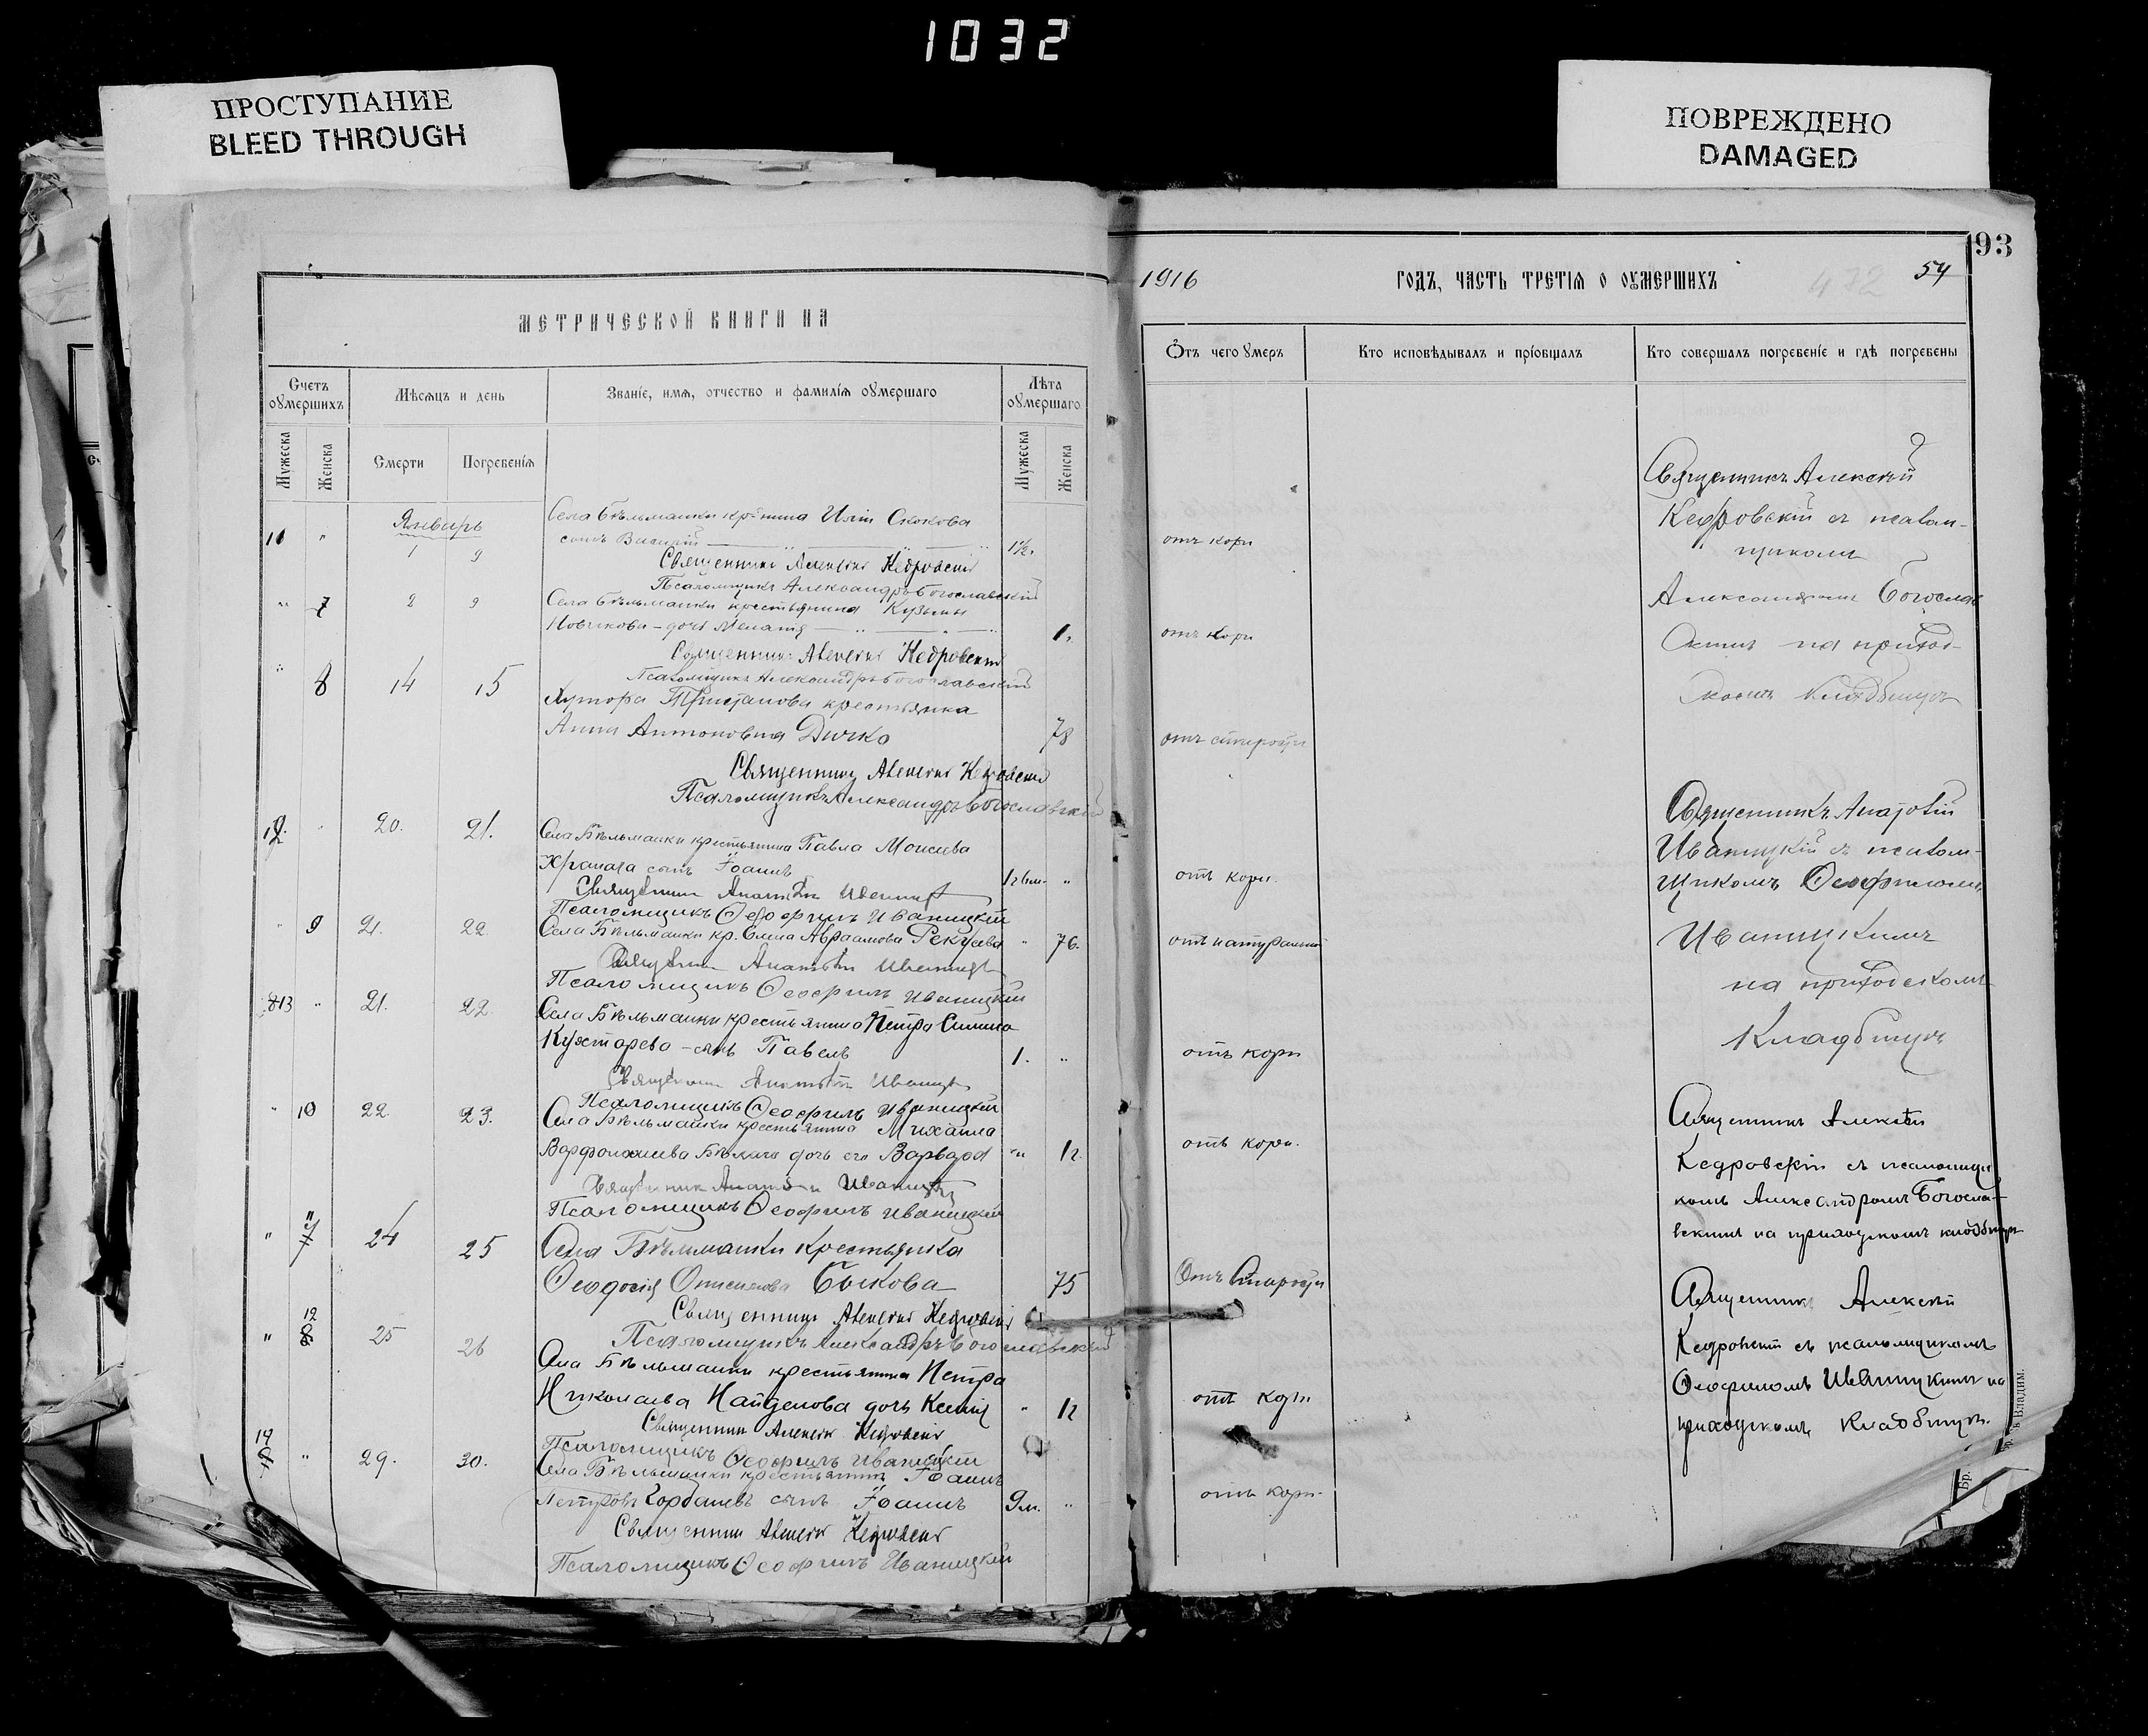 1032
ПРОСТУПАНИЕ
BLEED THROUGH
ПОВРЕЖДЕНО
DAMAGED
93
МЕТРИЧЕСКОЙ КНИГИ НА
Счетъ оумершихъ
Мѣсяцъ и день
Званіе, имя, отчество и фамилія оумершаго
Лѣта оумершаго
Мужеска
Женска
Смерти
Погребенія
Мужеска
Женска
Январь
Села Бѣльманки кр-нина Иліи Скокова
11 " 1 9 сынъ Василій 1½
Священникъ Алексѣй Кедровскій
Псаломщикъ Александръ Богославскій
" 7 2 9 Села Бѣльманки крестьянина Кузьмы
Новикова - дочь Меланія 1
Священникъ Алексѣй Кедровскій
Псаломщикъ Александръ Богославскій
" 8 14 15 Хутора крестьянка
Анна Антоновна Дичко 78
Священникъ Алексѣй Кедровскій
Псаломщикъ Александръ Богославскій
12. " 20. 21. Села Бѣльманки крестьянина Павла Моисеева
Храпача сынъ Іоаннъ "
Священникъ Анатолій Иваницкій
Псаломщикъ Ѳеофилъ Иваницкій
" 9 21. 22. Села Бѣльманки кр. Елена Авраамова " 76.
Священникъ Анатолій Иваницкій
Псаломщикъ Ѳеофилъ Иваницкій
13 " 21. 22. Села Бѣльманки крестьянина Петра
сынъ Павелъ 1. "
Священникъ Анатолій Иваницкій
Псаломщикъ Ѳеофилъ Иваницкій
" 10 22. 23. Села Бѣльманки крестьянина Михаила
Варфоломеева дочь его Варвара " 1г.
Священникъ Анатолій Иваницкій
Псаломщикъ Ѳеофилъ Иваницкій
" 11 24 25 Села Бѣльманки крестьянка
Ѳеодосія Быкова 75
Священникъ Алексѣй Кедровскій
Псаломщикъ Александръ Богославскій
" 12 25 26 Села Бѣльманки крестьянина Петра
Николаева Найденова дочь Ксенія " 1г
Священникъ Алексѣй Кедровскій
Псаломщикъ Ѳеофилъ Иваницкій
14 " 29. 30. Села Бѣльманки крестьянина Іоанна
Петрова сынъ Іоаннъ 9м. "
Священникъ Алексѣй Кедровскій
Псаломщикъ Ѳеофилъ Иваницкій
1916
ГОДЪ, ЧАСТЬ ТРЕТІЯ О ОУМЕРШИХЪ
472
54
Отъ чего умеръ
Кто исповѣдывалъ и пріобщалъ
Кто совершалъ погребеніе и гдѣ погребены
отъ кори
отъ кори
отъ старости
отъ кори.
отъ натуральной
отъ кори
отъ кори.
Отъ старости
отъ кори
отъ кори.
Священникъ Алексѣй
Кедровскій съ псалом-
щикомъ
Александромъ Богослав
скимъ на приход-
скомъ кладбищѣ
Священникъ Анатолій
Иваницкій съ псалом-
щикомъ Ѳеофиломъ
Иваницкимъ
на приходскомъ
Кладбищѣ
Священникъ Алексѣй
Кедровскій съ псаломщи
комъ Александромъ Богосла-
вскимъ на приходскомъ кладбищѣ
Священникъ Алексѣй
Кедровскій съ псаломщикомъ
Ѳеофиломъ Иваницкимъ на
приходскомъ кладбищѣ.
в Владим.
Бр.